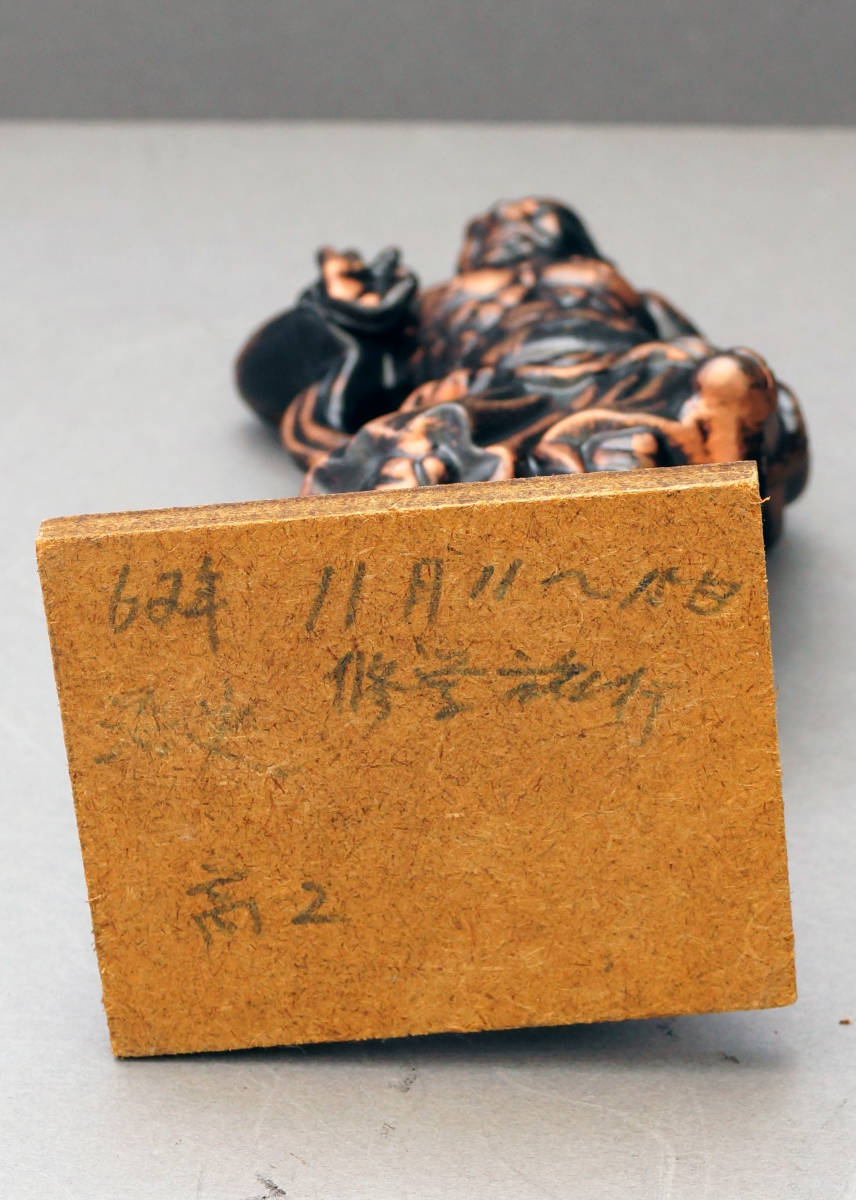 62年 11月11〜 日
修学旅行
高2